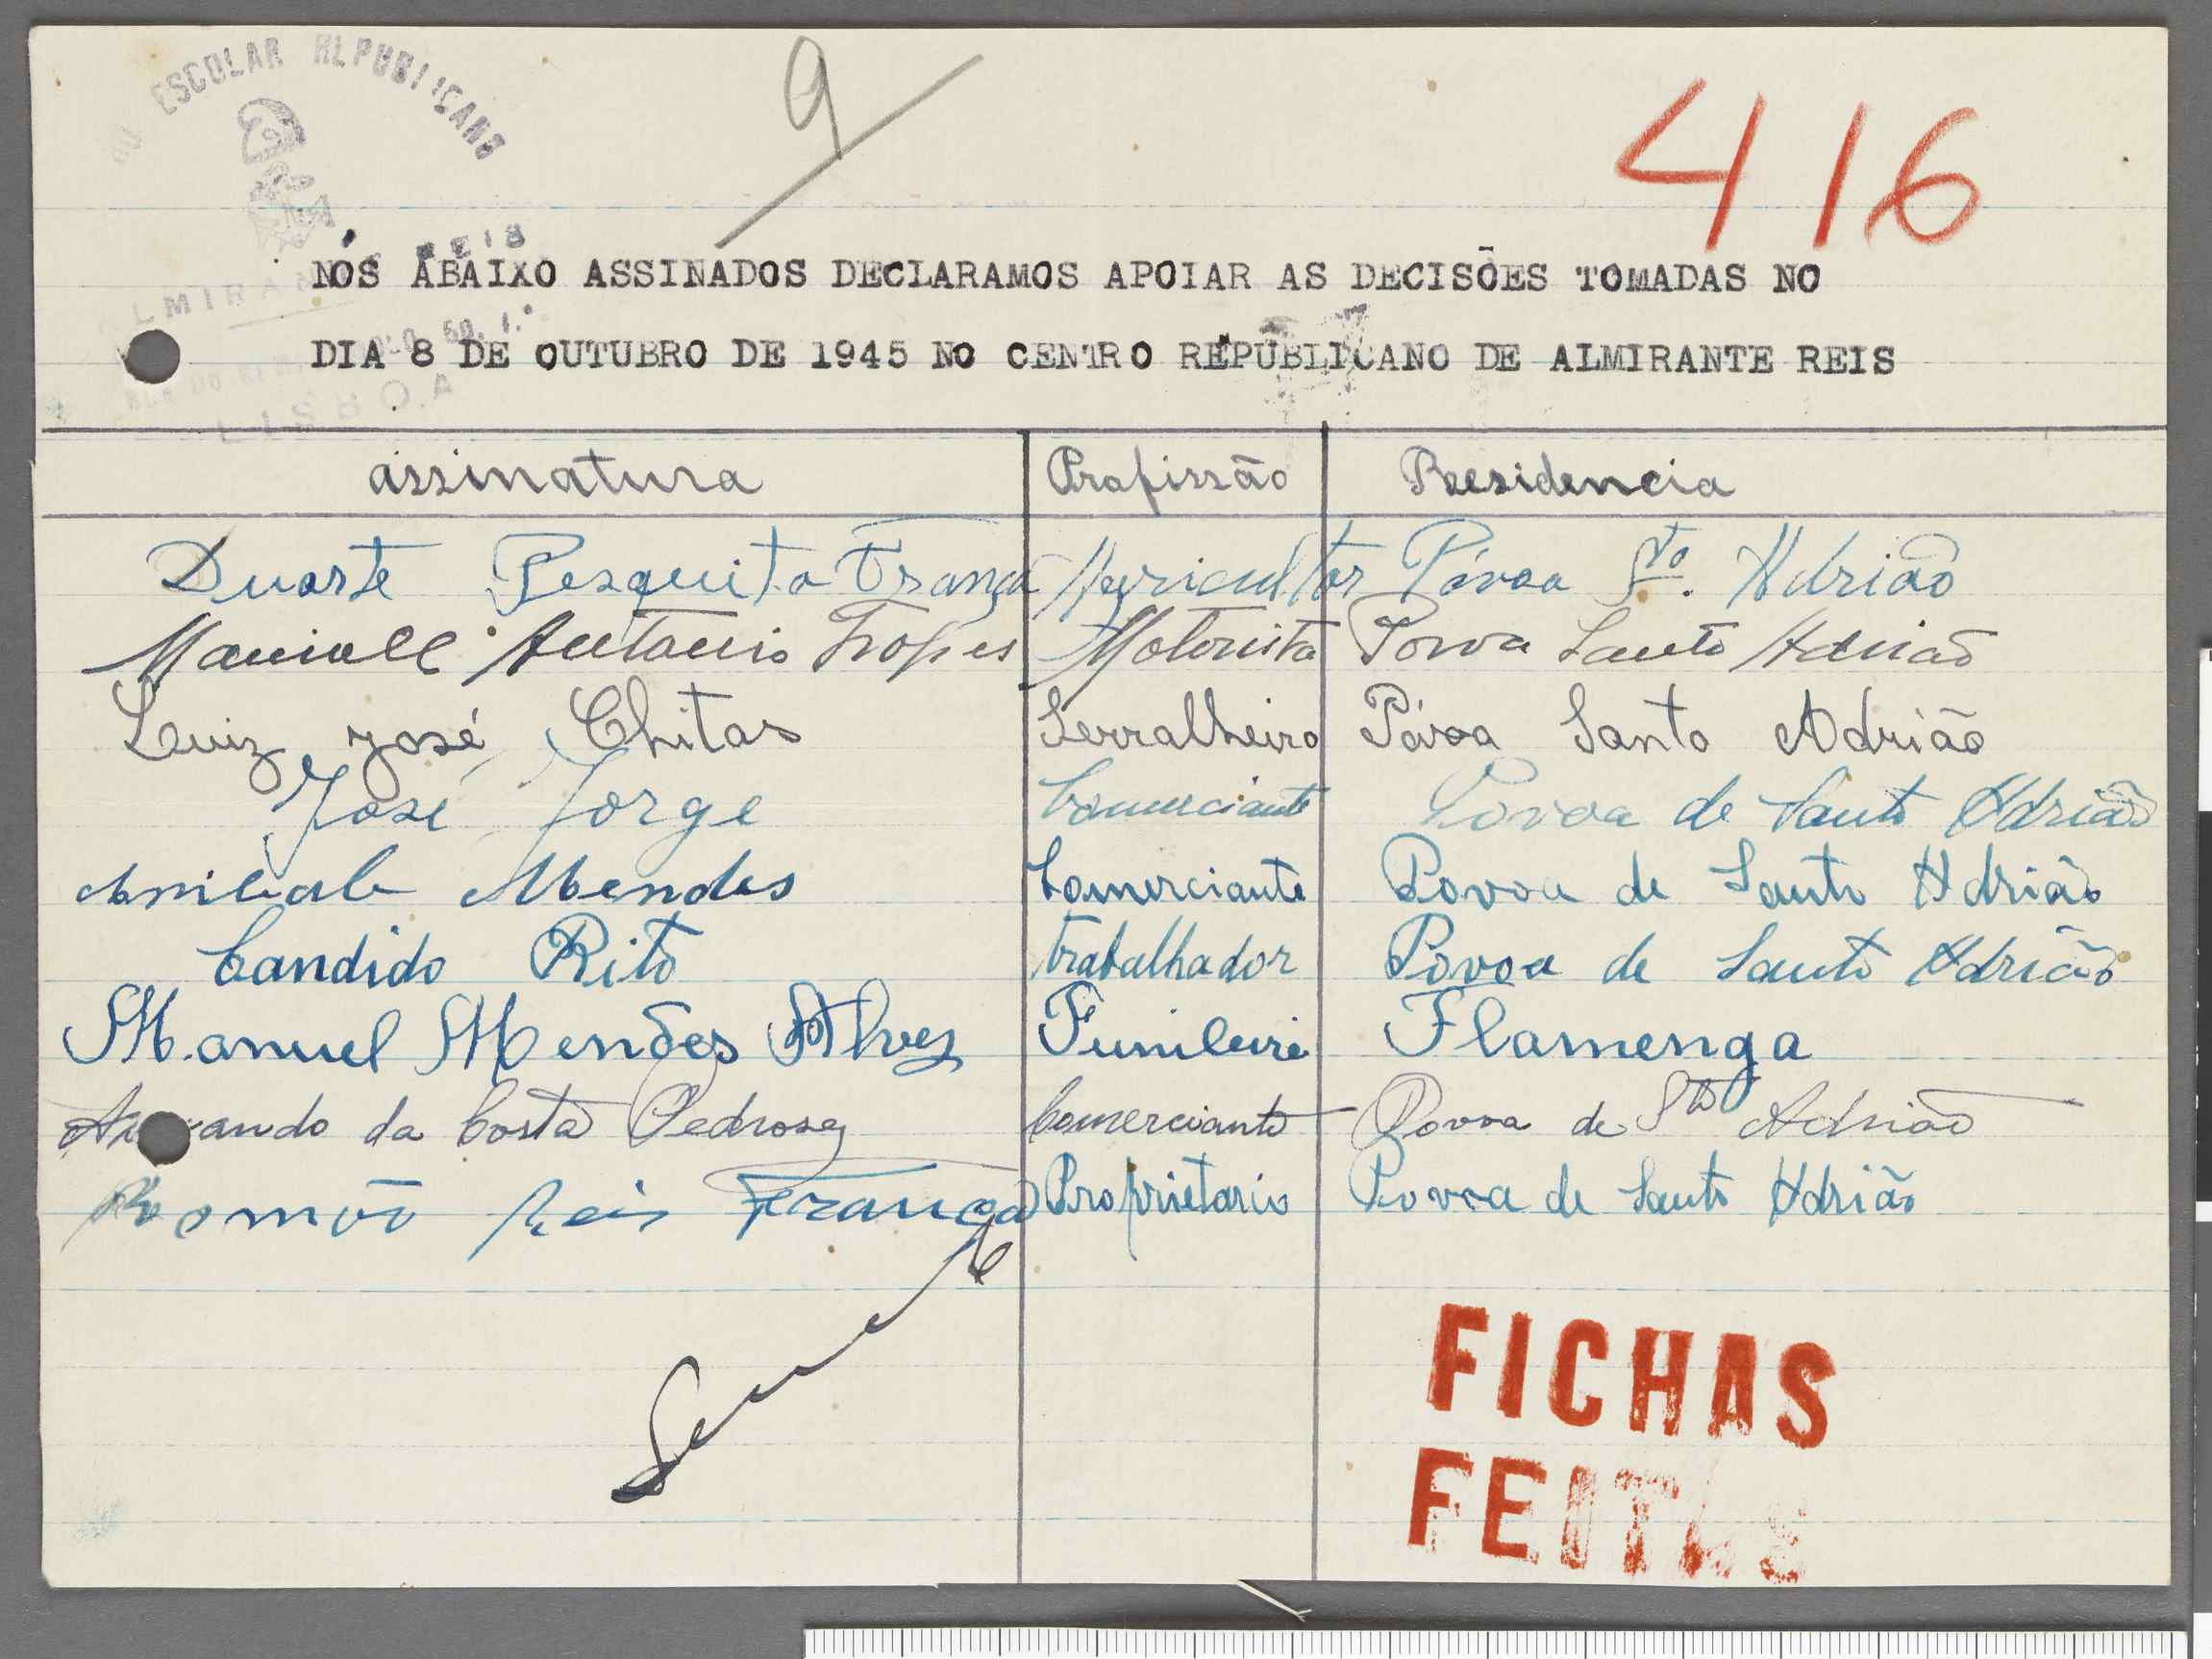 ESCOLAR REPUBLICANO
9
416
REIS
NÓS ABAIXO ASSINADOS DECLARAMOS APOIAR AS DECISÕES TOMADAS NO
DIA 8 DE OUTUBRO DE 1945 NO CENTRO REPUBLICANO DE ALMIRANTE REIS
LISBOA
assinatura Profissão Residencia
Duarte Pesquita França Agricultor Póvoa Sto. Adrião
Antonio Lopes Motorista Povoa Santo Adrião
Luiz José Chitas Serralheiro Póvoa Santo Adrião
José Jorge Comerciante Povoa de Santo Adrião
Anibal Mendes Comerciante Povoa de Santo Adrião
Candido Rito trabalhador Povoa de Santo Adrião
Manuel Mendes Alves Funileiro Flamenga
da Costa Pedrosa Comerciante Povoa de Sto Adrião
Reis França Proprietario Povoa de Santo Adrião
FICHAS
FEITAS